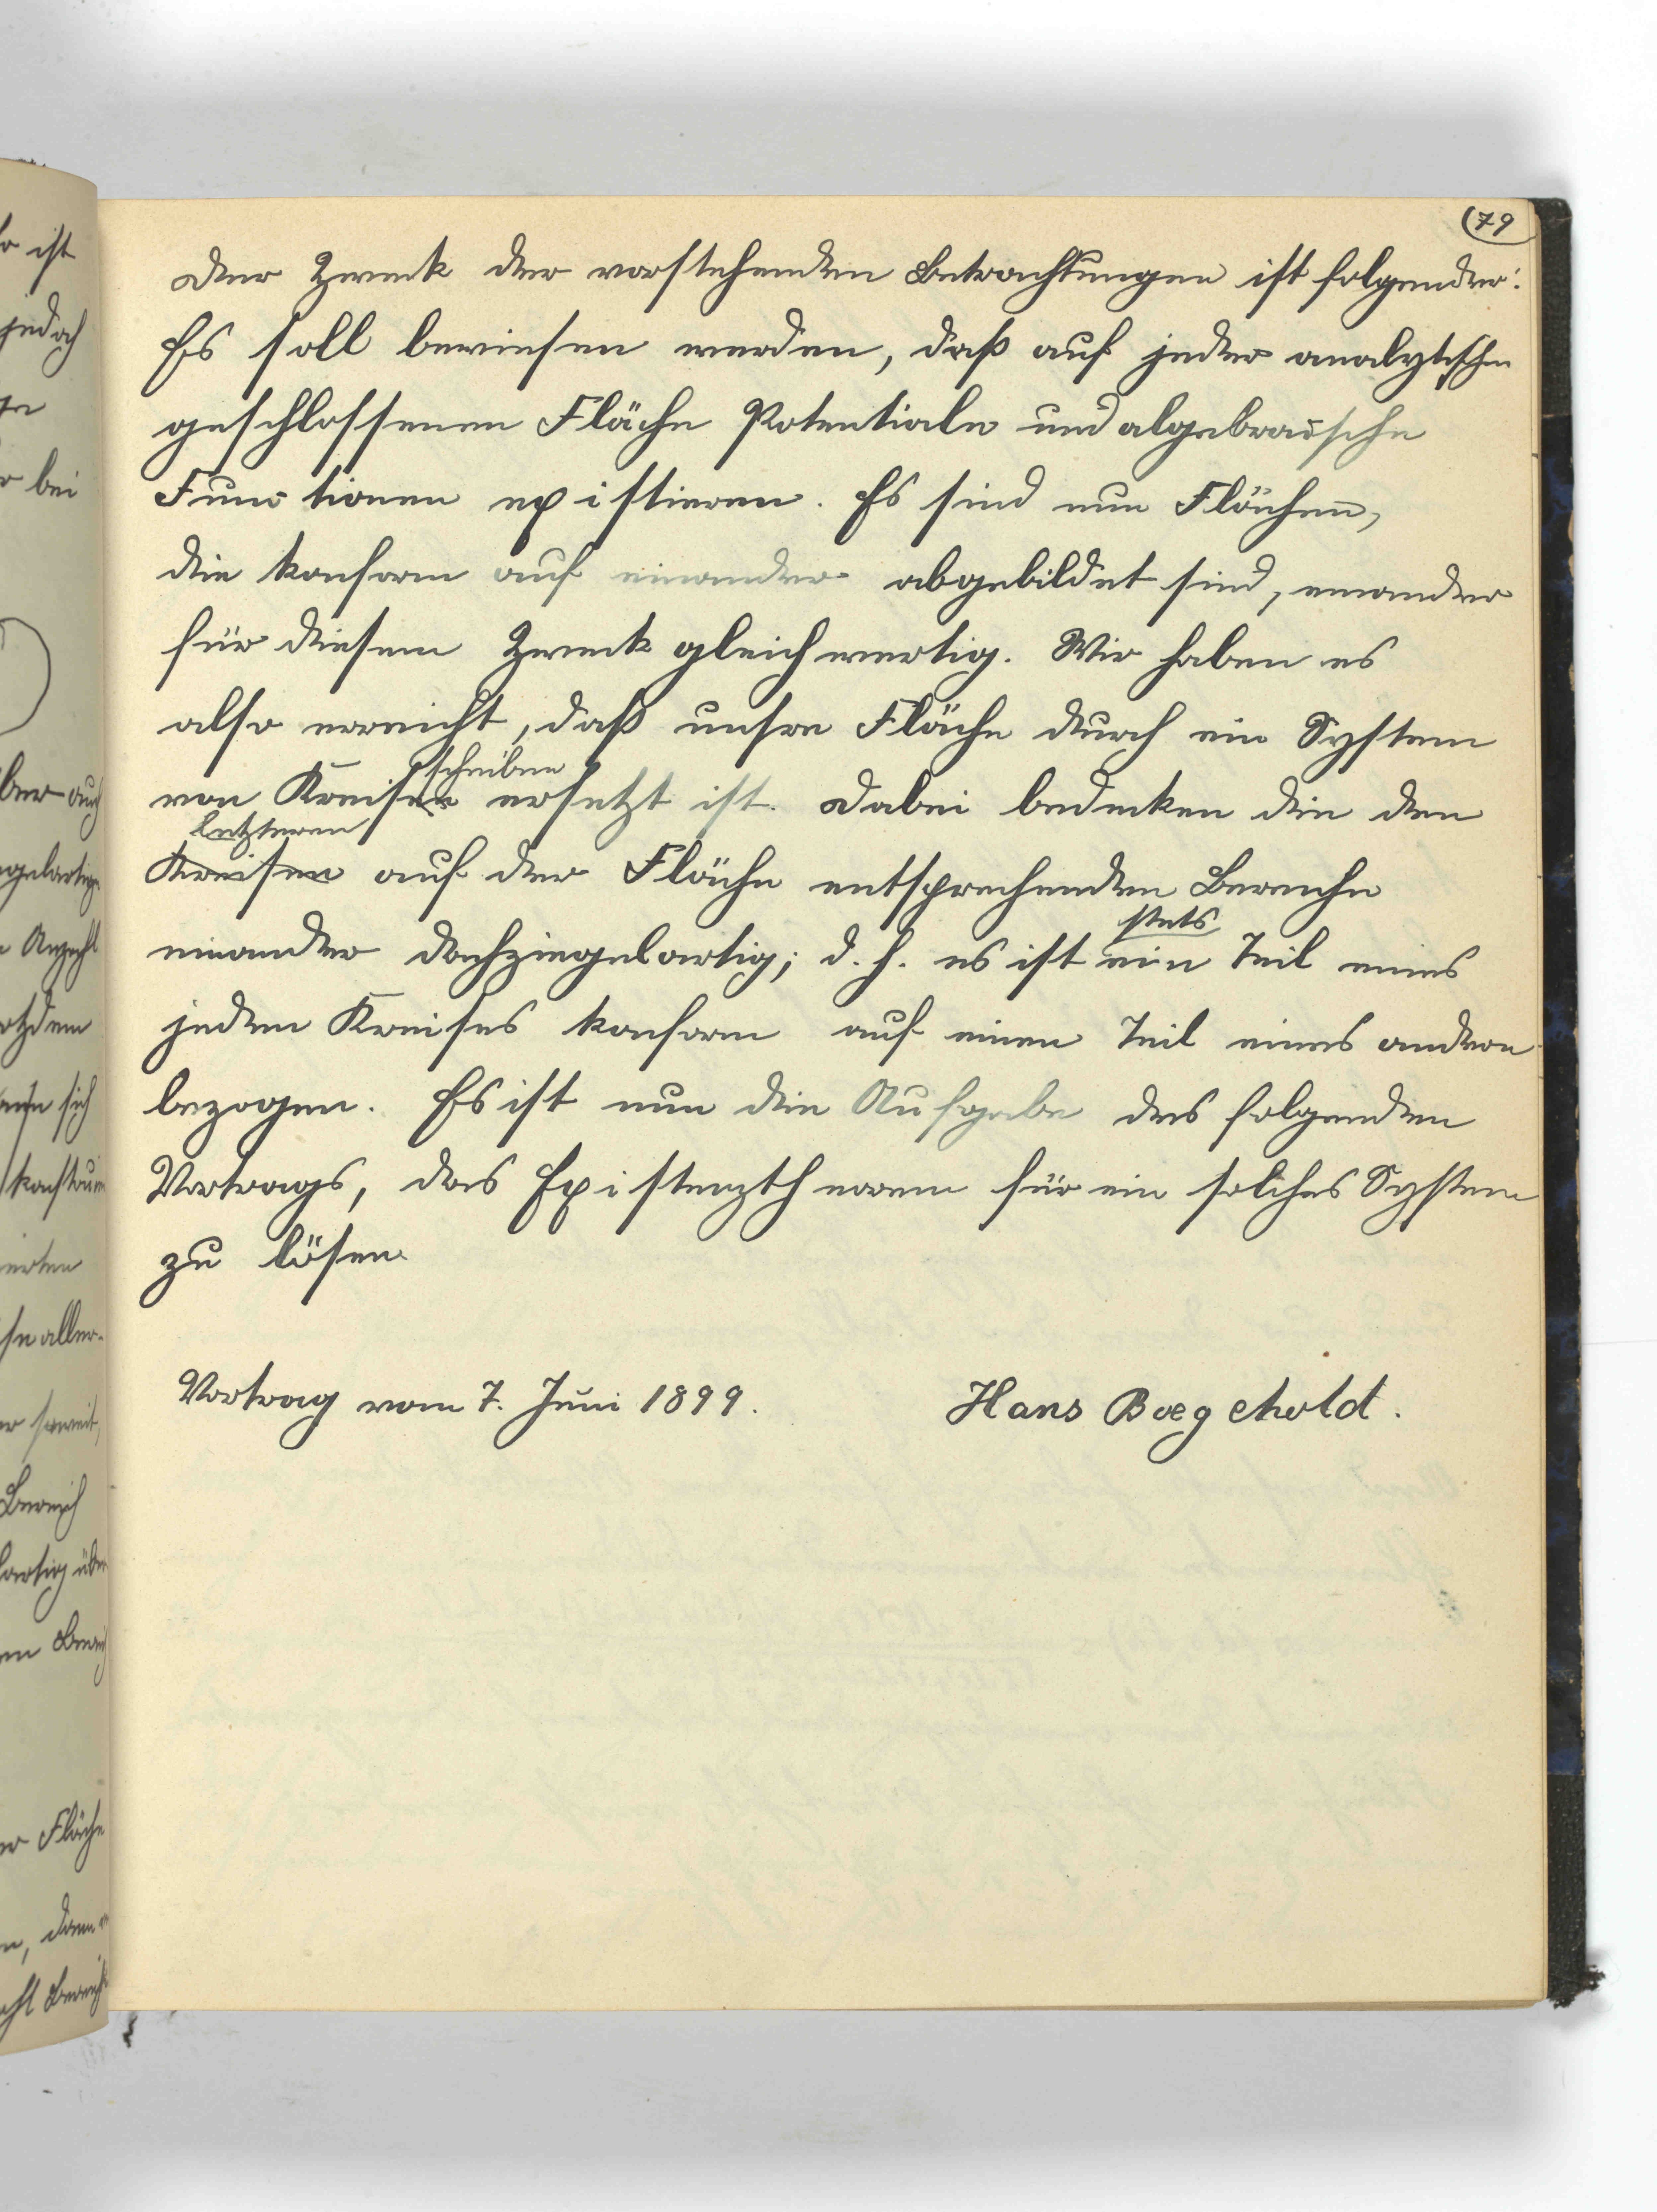 79
Der Zweck der vorstehenden Betrachtungen ist folgender:
Es soll bewiesen werden, daß auf jeder analytischen
geschlossenen Fläche Potentiale und algebraische
Functionen existieren. Es sind nun Flächen,
die konform auf einander abgebildet sind, einander
für diesen Zweck gleichwertig. Wir haben es
also erreicht, daß unsre Fläche durch ein System
scheiben
von Kreisen ersetzt ist. Dabei bedecken die den
letzteren
Kreisen auf der Fläche entsprechenden Bereiche
stets
einander dachziegelartig; d. h. es ist ein Teil eines
jeden Kreises konform auf einen Teil eines andren
bezogen. Es ist nun die Aufgabe des folgenden
Vortrags, das Existenztheorem für ein solches System
zu lösen.
Vortrag vom 7. Juni 1899.
Hans Boegehold.
ist
jedoch
bei
aber auch
Anzahl
sich
aller-
Bereich
Fläche